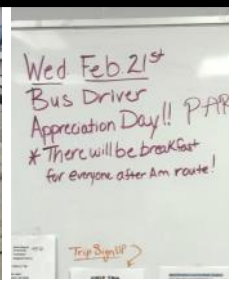 Wed Feb. 21st
Bus Driver
Appreciation Day!!
* There will be breakfast
for everyone after Am route!
Trip Sign UP